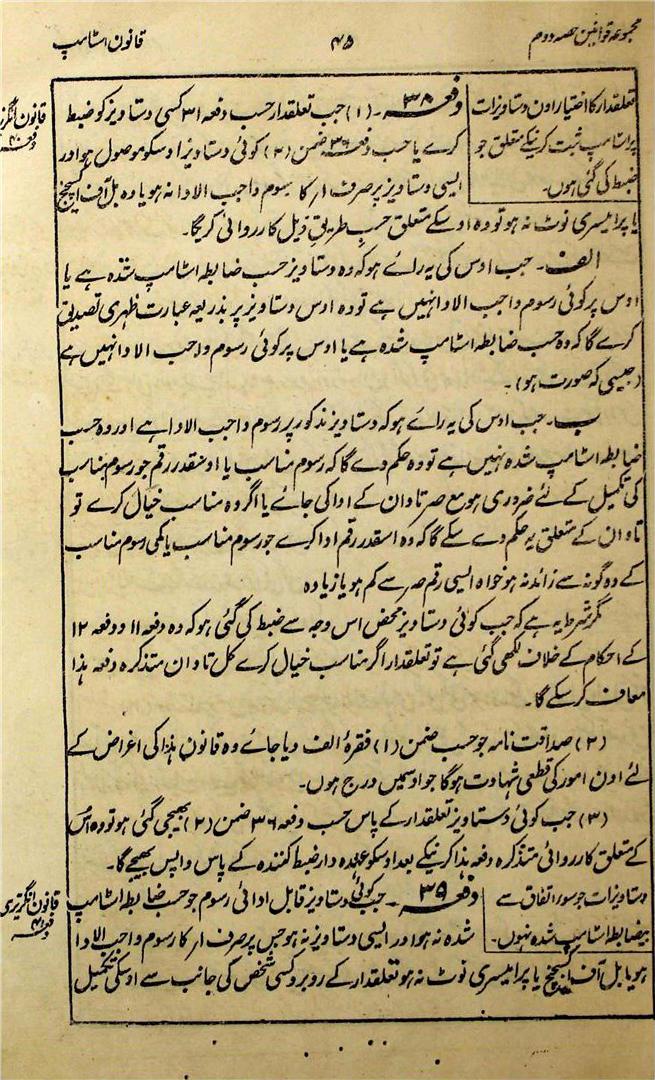 مجموعہ قوانین حصہ دوم
۴۵
قانون اسٹامپ
تعلقدار کا اختیار اون دستاویزات
پر اسٹامپ ثبت کرنیکے متعلق جو
ضبط کی گئی ہوں۔
قانون انگریزی
دفعہ ۴۰
دفعہ ۳۸۔ (۱) جب تعلقدار حسب دفعہ ۳۱ کسی دستاویز کو ضبط
کرے یا حسب دفعہ ۳۶ ضمن (۲) کوئی دستاویز اوسکو موصول ہو اور
ایسی دستاویز پر صرف ۱ر کا رسوم واجب الادا نہ ہو یا وہ بل آف اکسچنج
یا پرامیسری نوٹ نہ ہو تو وہ اوسکے متعلق حسب طریق ذیل کارروائی کریگا۔
الف۔ جب اوس کی یہ راے ہو کہ وہ دستاویز حسب ضابطہ اسٹامپ شدہ ہے یا
اوس پر کوئی رسوم واجب الادا نہیں ہے تو وہ اوس دستاویز پر بذریعہ عبارت ظہری تصدیق
کرے گا کہ وہ حسب ضابطہ اسٹامپ شدہ ہے یا اوس پر کوئی رسوم واجب الادا نہیں ہے
(جیسی کہ صورت ہو)۔
ب۔ جب اوس کی یہ راے ہو کہ دستاویز مذکور پر رسوم واجب الادا ہے اور وہ حسب
ضابطہ اسٹامپ شدہ نہیں ہے تو وہ حکم دے گا کہ رسوم مناسب یا اوسقدر رقم جو رسوم مناسب
کی تکمیل کے لئے ضروری ہو مع صہ تاوان کے ادا کی جائے یا اگر وہ مناسب خیال کرے تو
تاوان کے متعلق یہ حکم دے سکے گا کہ وہ اسقدر رقم ادا کرے جو رسوم مناسب یا کمی رسوم مناسب
کے دہ گونہ سے زائد نہ ہو خواہ ایسی رقم صہ سے کم ہو یا زیادہ
مگر شرط یہ ہے کہ جب کوئی دستاویز محض اس وجہ سے ضبط کی گئی ہو کہ وہ دفعہ ۱۱ و دفعہ ۱۲
کے احکام کے خلاف لکھی گئی ہے تو تعلقدار اگر مناسب خیال کرے کل تاوان متذکرہ دفعہ ہذا
معاف کر سکے گا۔
(۲) صداقت نامہ جو حسب ضمن (۱) فقرۂ الف دیا جاے وہ قانون ہذا کی اغراض کے
لئے اون امور کی قطعی شہادت ہوگا جو اوسمیں درج ہوں۔
(۳) جب کوئی دستاویز تعلقدار کے پاس حسب دفعہ ۳۶ ضمن (۲) بھیجی گئی ہو تو وہ اس
کے متعلق کارروائی متذکرہ دفعہ ہذا کرنیکے بعد اوسکو عہدہ دار ضبط کنندہ کے پاس واپس بھیجے گا۔
دستاویزات جو سوء اتفاق سے
بیضابطہ اسٹامپ شدہ نہوں۔
قانون انگریزی
دفعہ ۴۱
دفعہ ۳۹۔ جب کوئی دستاویز قابل ادائی رسوم جو حسب ضابطہ اسٹامپ
شدہ نہ ہو اور ایسی دستاویز نہ ہو جس پر صرف ۱ر کا رسوم واجب الادا
ہو یا بل آف اکسچنج یا پرامیسری نوٹ نہ ہو تعلقدار کے روبرو کسی شخص کی جانب سے اوسکی تکمیل